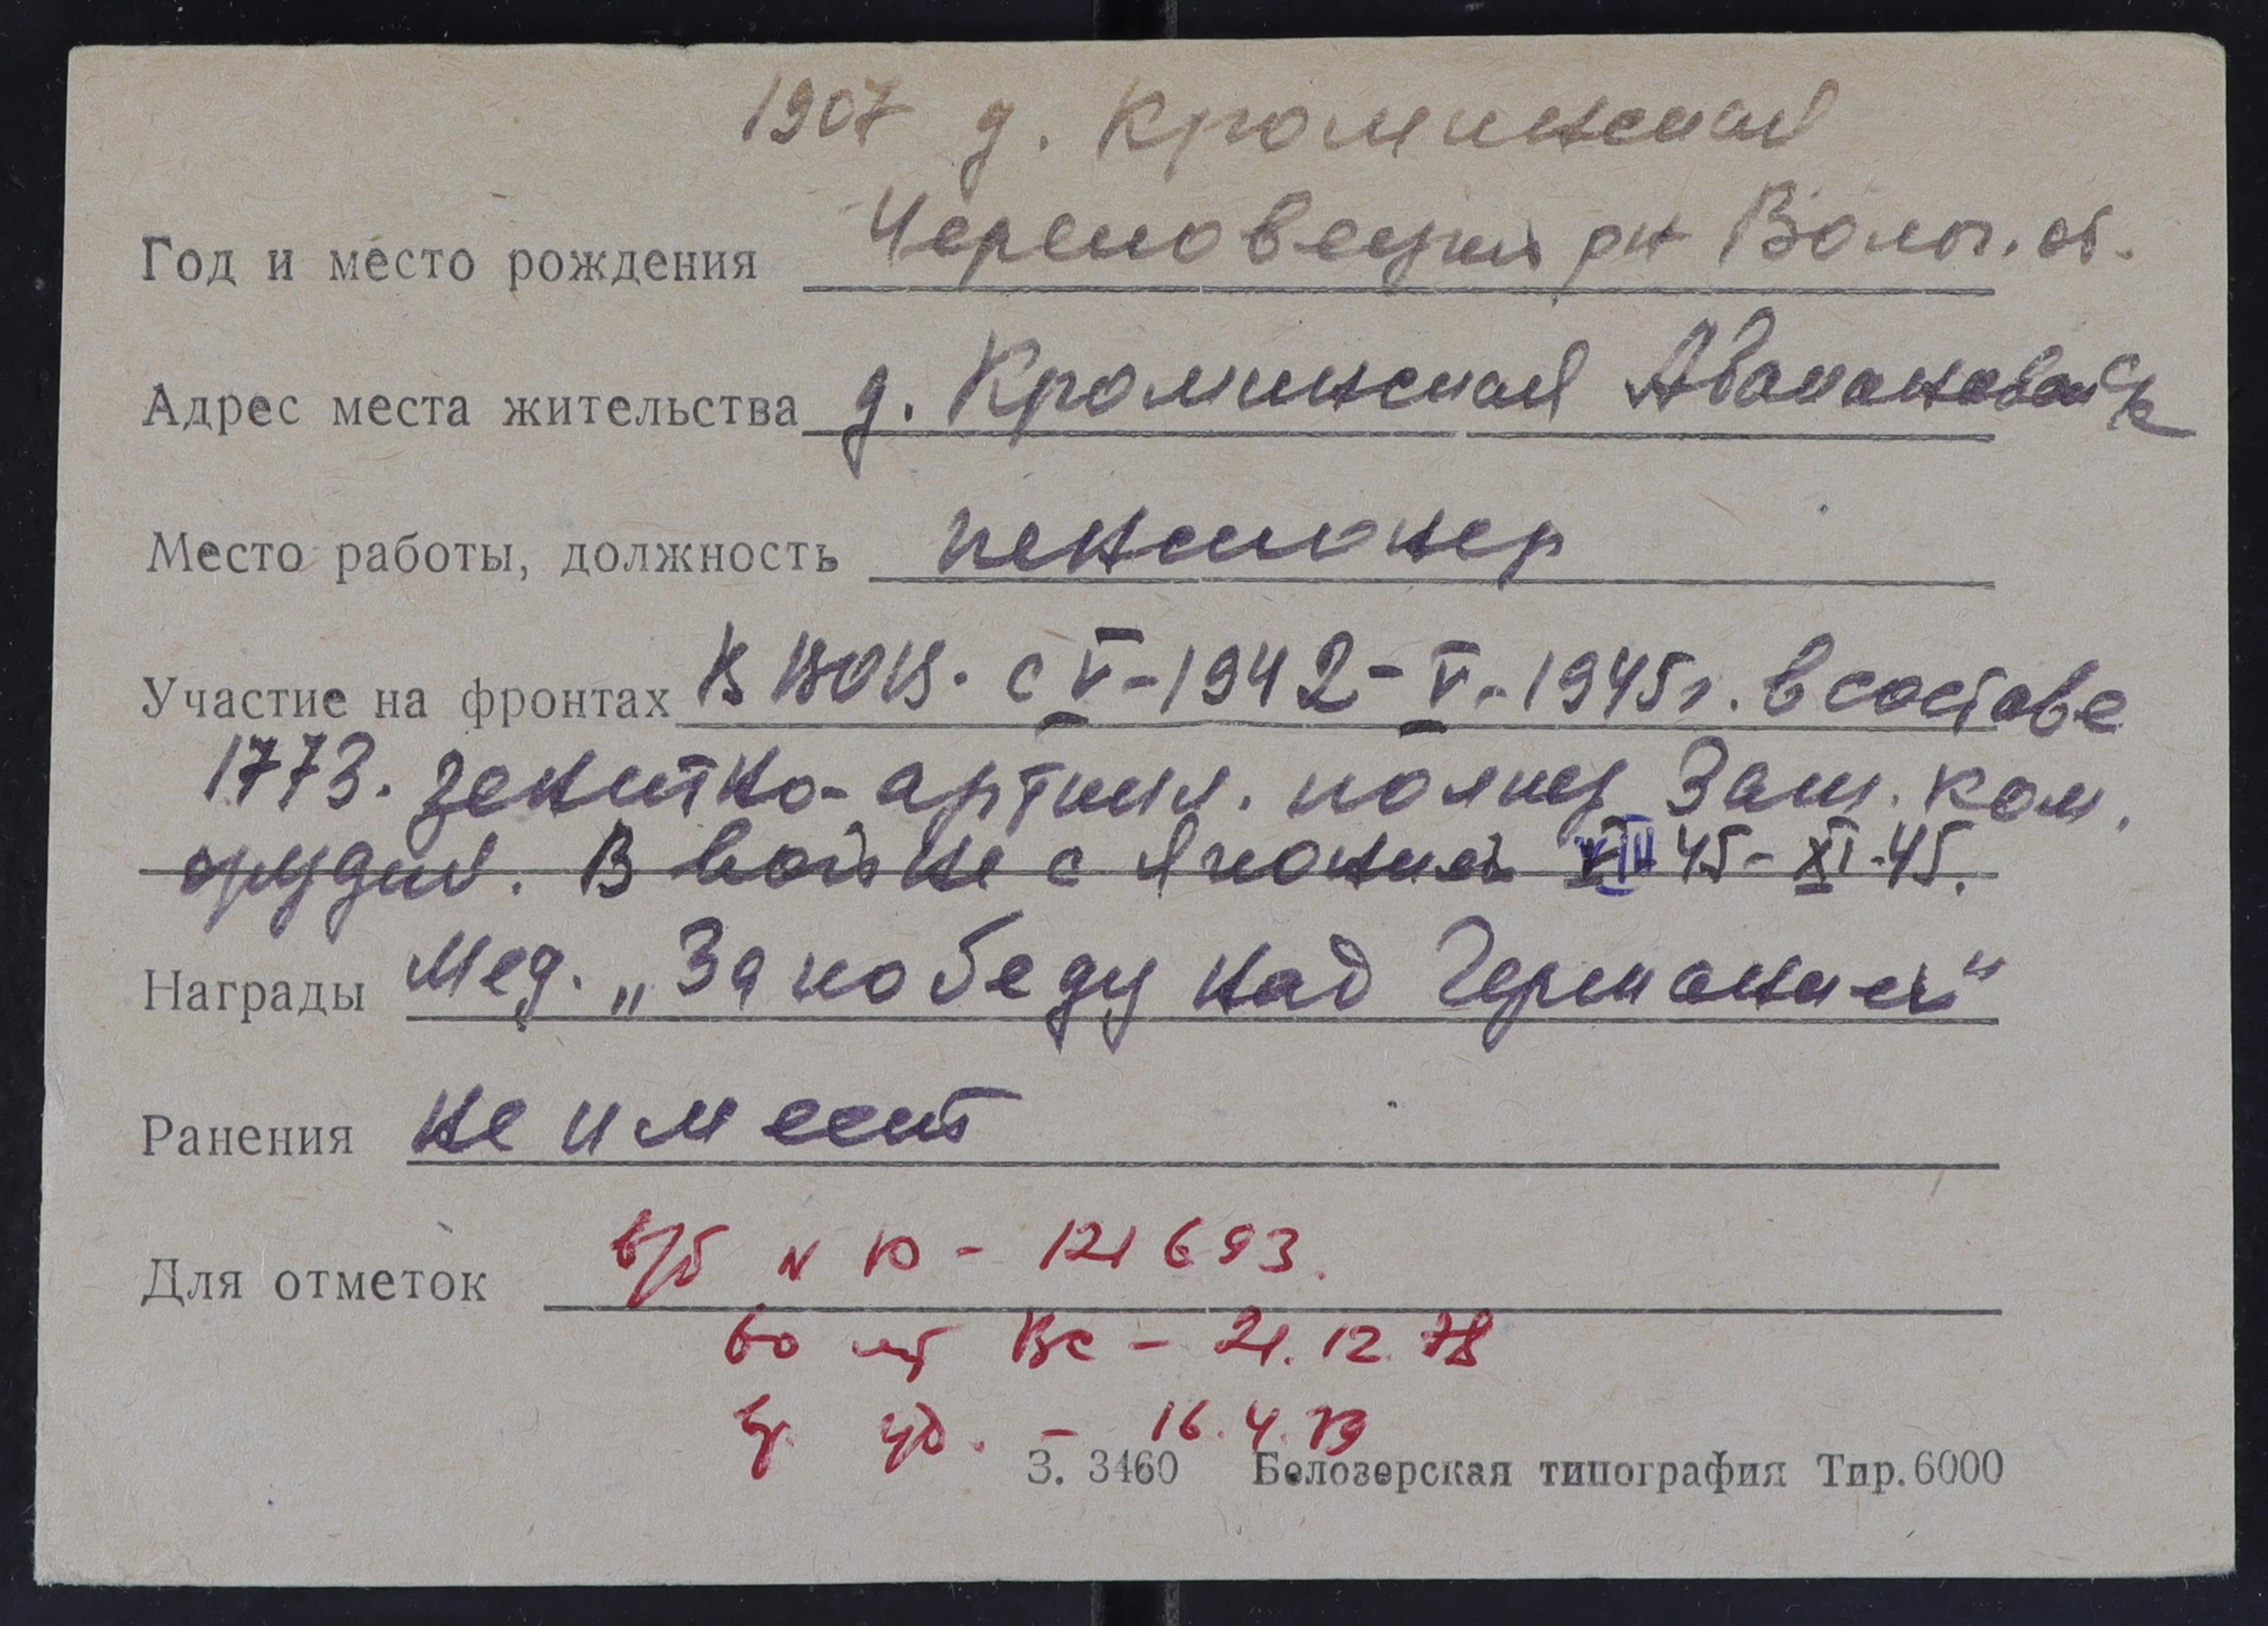 1907 д. Кроминская
Год и место рождения Череповецкий рн Волог. об.
Адрес места жительства д. Кроминская Абакановский с/с
Место работы, должность пенсионер
Участие на фронтах В ВОВ. с V-1942-V-1945г. в составе
1773. зенитно-артилл. полка Зам. ком.
орудия. В войне с Японией VIII 45-XI-45.
Награды Мед. „За победу над Германией"
Ранения не имеет
Для отметок в/б N Ю - 121693.
Вс - 21.12.78
уд. - 16.4.79
З. 3460 Белозерская типография Тир. 6000